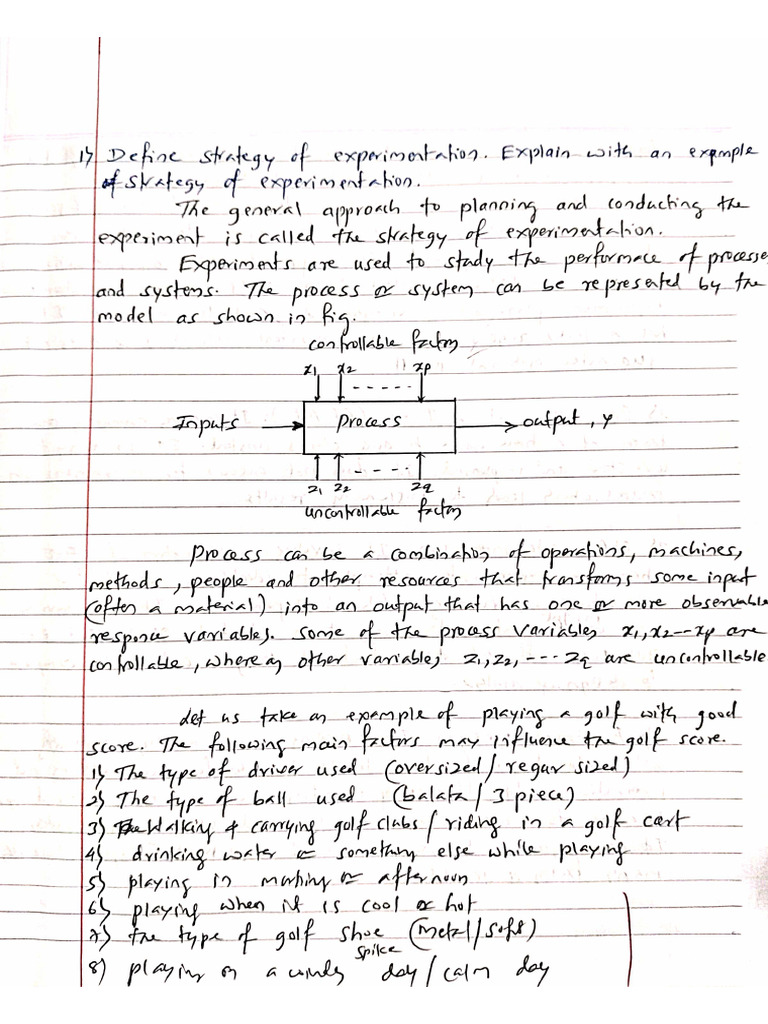 1) Define strategy of experimentation. Explain with an example
of strategy of experimentation.
The general approach to planning and conducting the
experiment is called the strategy of experimentation.
Experiments are used to study the performace of processe
and systems. The process or system can be represented by the
model as shown in fig.
controllable factors
x1 x2 - - - - - xp
Inputs Process output, y
z1 z2 - - - - zq
uncontrollable factors
Process can be a combination of operations, machines,
methods, people and other resources that transforms some input
(often a material) into an output that has one or more observable
responce variables. Some of the process variables x1, x2 -- xp are
controllable, where as other variables z1, z2, --- zq are uncontrollable
Let us take an example of playing a golf with good
score. The following main factors may influence the golf score.
1) The type of driver used (oversized / regur sized)
2) The type of ball used (balata / 3 piece)
3) Walking & carrying golf clubs / riding in a golf cart
4) drinking water or something else while playing
5) playing in morning or afternoon
6) playing when it is cool or hot
7) the type of golf shoe spike (metal / soft)
8) playing on a windy day / calm day